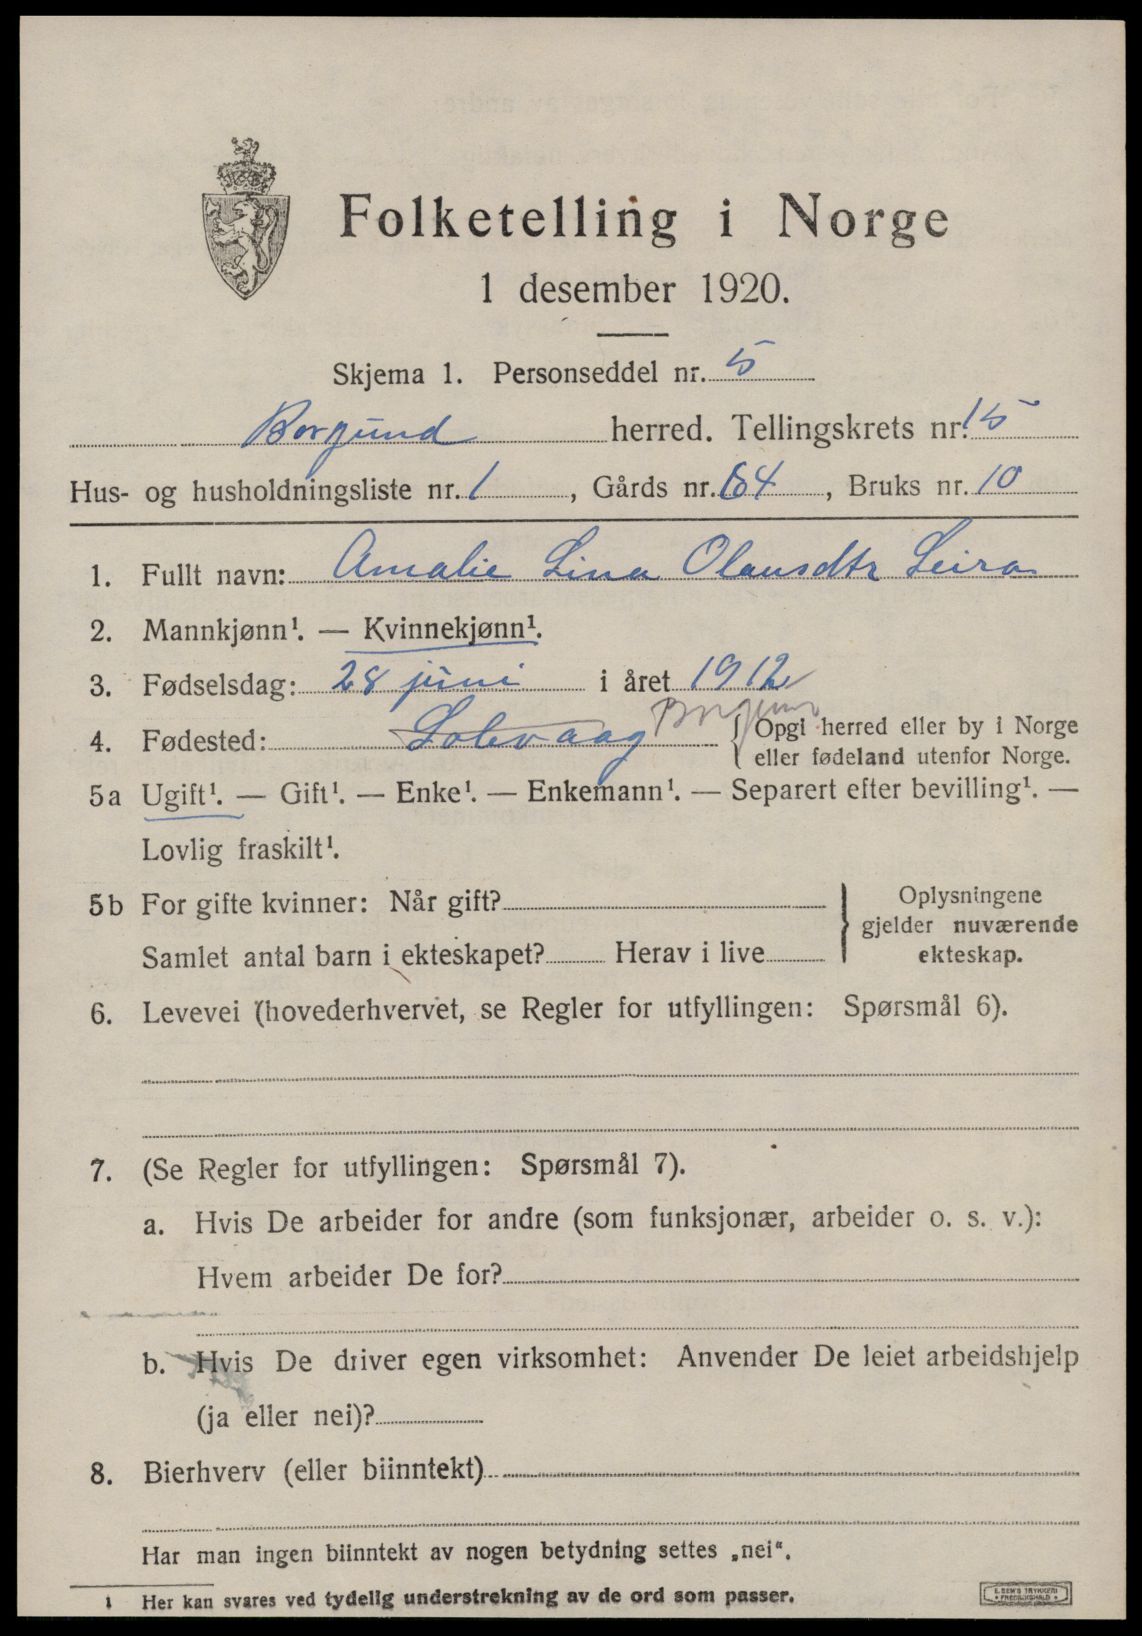 Folketelling i Norge
1 desember 1920.
Skjema 1. Personseddel nr. 5
Borgund herred. Tellingskrets nr. 15
Hus- og husholdningsliste nr. 1, Gårds nr. 64, Bruks nr. 10
1. Fullt navn: Amalie Lina Olausdtr Leira
2. Mannkjønn¹. — Kvinnekjønn¹.
3. Fødselsdag: 28 juni i året 1912
Borgund
4. Fødested: Solevaag { Opgi herred eller by i Norge
eller fødeland utenfor Norge.
5a Ugift¹. — Gift¹. — Enke¹. — Enkemann¹. — Separert efter bevilling¹. —
Lovlig fraskilt¹.
5b For gifte kvinner: Når gift?
Samlet antal barn i ekteskapet? Herav i live
} Oplysningene
gjelder nuværende
ekteskap.
6. Levevei (hovederhvervet, se Regler for utfyllingen: Spørsmål 6).
7. (Se Regler for utfyllingen: Spørsmål 7).
a. Hvis De arbeider for andre (som funksjonær, arbeider o. s. v.):
Hvem arbeider De for?
b. Hvis De driver egen virksomhet: Anvender De leiet arbeidshjelp
(ja eller nei)?
8. Bierhverv (eller biinntekt)
Har man ingen biinntekt av nogen betydning settes „nei“.
1 Her kan svares ved tydelig understrekning av de ord som passer.
E. SEM'S TRYKKERI
FREDRIKSHALD